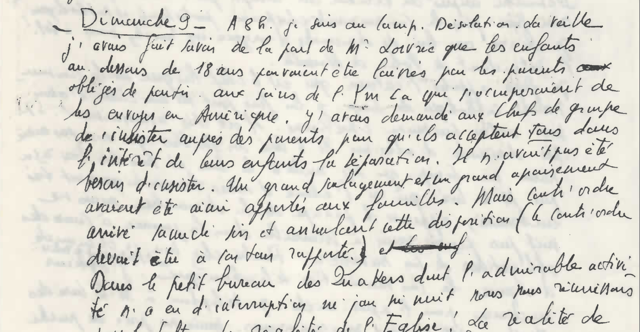 Dimanche 9 – A 8h. je suis au camp. Désolation. La veille
j'avais fait savoir de la part de Mr Lowrie que les enfants
au dessous de 18 ans pouvaient être laissés par les parents
obligés de partir aux soins de l'Ymca qui s'occuperaient de
les envoyer en Amérique. J'avais demandé aux Chefs de groupe
de insister auprès des parents pour qu'ils acceptent tous dans
l'intérêt de leurs enfants la séparation. Il n'avait pas été
besoin d'insister. Un grand soulagement et un grand apaisement
avaient été ainsi apportés aux familles. Mais contr'ordre
arrivé samedi soir et annulant cette disposition (le contr'ordre
devait être à son tour rapporté) et
Dans le petit bureau des Quakers dont l'admirable activi-
té n'a eu d'interruption ni jour ni nuit nous nous réunissons
de l'Eglise ! La réalité de